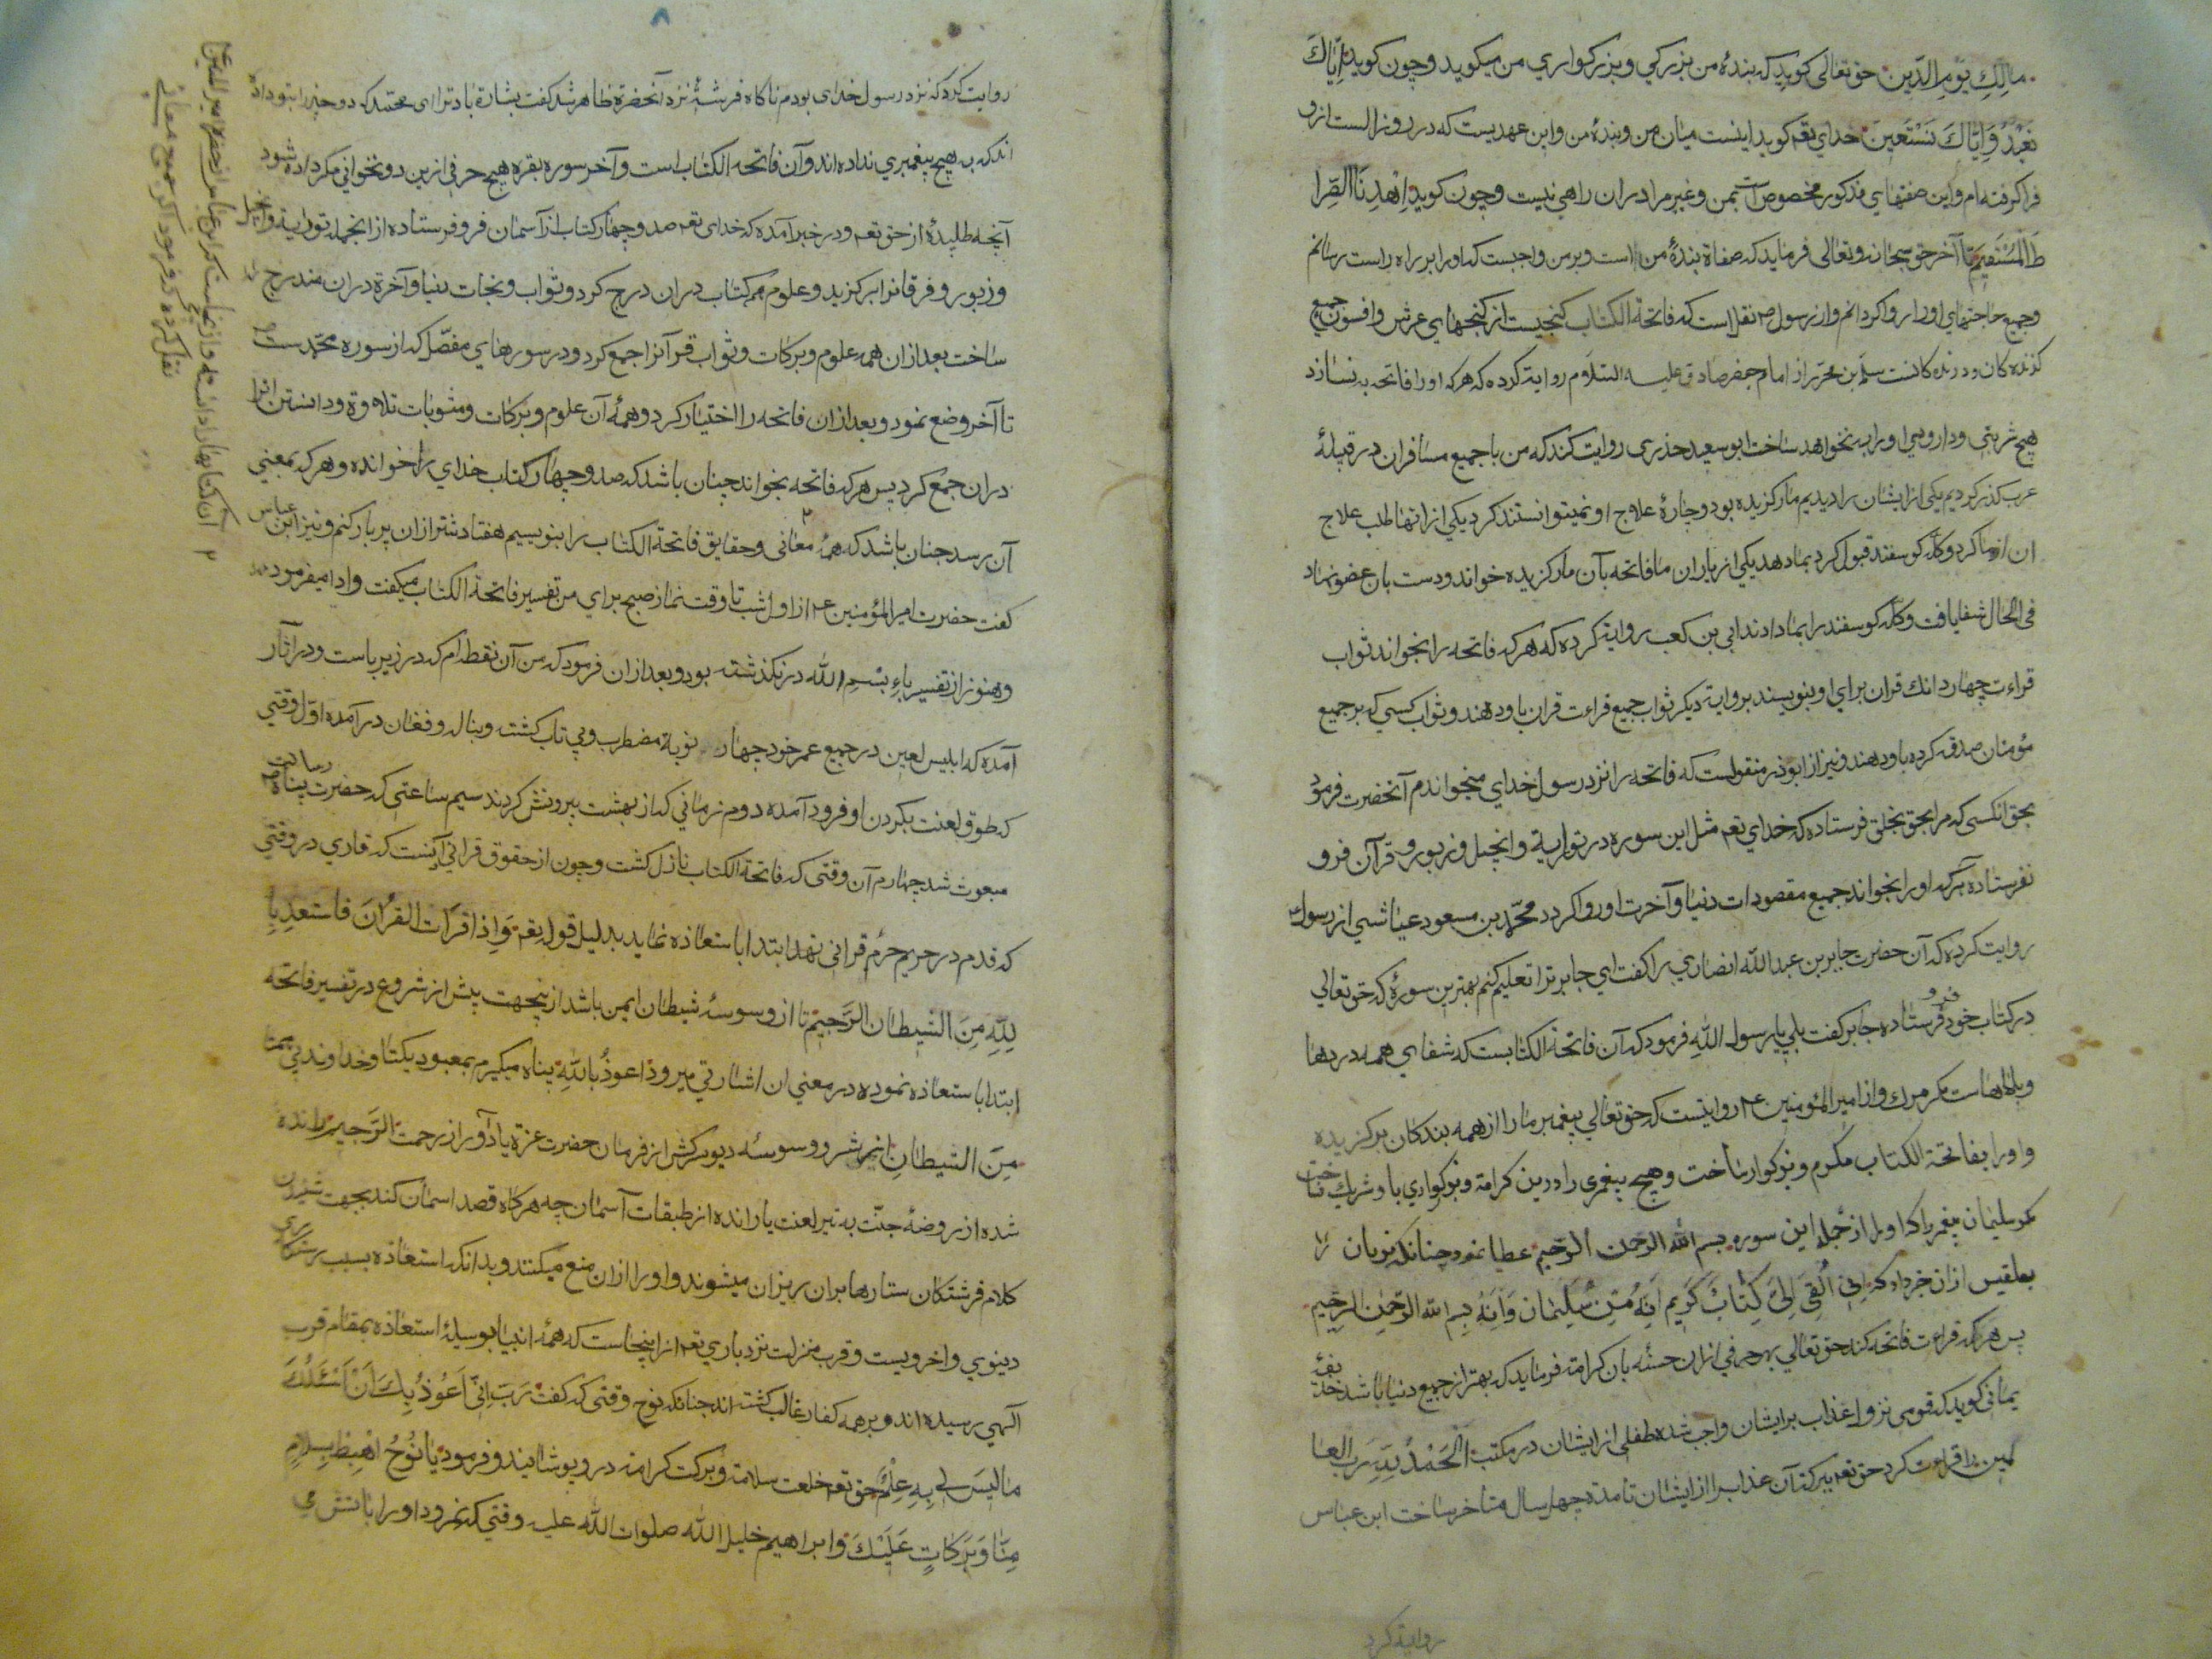 مالِكِ يَوْمِ الدّين حق تعالى كويد كه بندهٔ من بزركي وبزركواري من ميكويد وچون كويد اِيّاكَ
نَعْبُدُ وَاِيّاكَ نَسْتَعين خداي تعه كويد اينست ميان من وبندهٔ من واين عهديست كه در روز الست ازو
فرا كرفته ام واين صفتهاي مذكور مخصوص است بمن وغير مرا دران راهي نيست وچون كويد اِهْدِنَا الصِّرا
طَ الْمُسْتَقيمَ تا آخر حق سبحانه وتعالى فرمايد كه صفاة بندهٔ من است وبر من واجبست كه اورا بر راه راست رسانم
وجميع حاجتهاي اورا روا كردانم واز رسول ص نقل است كه فاتحة الكتاب كنجيست از كنجهاي عرش وافسون جميع
كزنده كان ودرنده كانست سلمة بن محرز از امام جعفر صادق عليه السّلام رواية كرده كه هر كه اورا فاتحه به نسازد
هيچ شربتي ودارويي اورا به نخواهد ساخت ابو سعيد حذرى روايت كند كه من با جميع مسافران در قبيلهٔ
عرب كذر كرديم يكي از ايشان را ديديم مار كزيده بود وچارهٔ علاج او نميتوانستند كرد يكي از انها طلب علاج
ان از ما كرد وكلّه كوسفند قبول كرد بما دهد يكي از ياران ما فاتحه بآن مار كزيده خواند ودست بان عضو نهاد
فى الحال شفا يافت وكله كوسفند را بما دادند ابي بن كعب رواية كرده كه هر كه فاتحه را بخواند ثواب
قراءت چهار دانك قران براي او بنويسند برواية ديكر ثواب جميع قراءت قران باو دهند وثواب كسي كه بر جميع
مؤمنان صدقه كرده باو دهند ونيز از ابوذر منقولست كه فاتحه را نزد رسول خداي ميخواندم آنحضرت فرمود
بحق انكسى كه مرا بحق بخلق فرستاده كه خداي تعه مثل اين سوره در تورية وانجيل وزبور وقرآن فرو
نفرستاده هركه اورا بخواند جميع مقصودات دنيا وآخرت او روا كردد محمّد بن مسعود عياشي از رسول ص
روايت كرده كه آن حضرت جابر بن عبد الله انصاري را كفت اي جابر ترا تعليم كنم بهترين سورهٔ كه حق تعالي
در كتاب خود فرو فرستاده جابر كفت بلي يا رسول الله فرمود كه آن فاتحة الكتابست كه شفاي همه دردها
وبلاهاست مكر مرك واز امير المؤمنين ع روايتست كه حق تعالي پيغمبر مارا از همه بندكان بر كزيده
واورا بفاتحة الكتاب مكرم وبزركوار ساخت وهيچ پيغمرى را درين كرامة وبزركواري باو شريك نساخت
مكر سليمان پيغمر را كه اورا از جمله اين سوره بسم الله الرحمن الرحيم عطا نمود چنانكه از زبان
بلقيس ازان خبر داد كه اِنّي اُلْقِيَ اِلَيَّ كِتابٌ كَريم اِنَّهُ مِنْ سُلَيْمان وَاِنَّهُ بسم الله الرّحمٰن الرحيم
پس هر كه قراءت فاتحه كند حق تعالي بهر حرفي ازان حسنه بان كرامة فرمايد كه بهتر از جميع دنيا باشد حذيفه
يمانى كويد كه قومى نزول عذاب بر ايشان واجب شده طفلى از ايشان در مكتب اَلْحَمْدُ لِلّهِ رَبّ العا
لمين را قراءت كرد حق تعه ببركت آن عذاب را از ايشان تا مدة چهل سال متاخر ساخت ابن عباس
رواية كرد
روايت كرد كه نزد رسول خداى بودم ناكاه فرشتهٔ نزد آنحضرة ظاهر شد كفت بشارة باد ترا اى محمّد كه دو چيز را بتو داده
اند كه به هيچ پيغمبري نداده اند وآن فاتحه الكتاب است وآخر سوره بقره هيچ حرفى ازين دو نخواني مكر داده شود
آنچه طلبيدهٔ از حق تعه ودر خبر آمده كه خداى تعه صد وچهار كتاب از آسمان فرو فرستاده از انجمله تورية وانجيل
وزبور وفرقانرا بر كزيد وعلوم همه كتاب دران درج كرد وثواب ونجات دنيا وآخرة دران مندرج
ساخت بعد ازان همه علوم وبركات وثواب قرآنرا جمع كرد ودر سورهاي مفصّل كه از سوره محمّد ست
تا آخر وضع نمود وبعد ازان فاتحه را اختيار كرد وهمهٔ آن علوم وبركات ومثوبات تلاوة ودانستن انرا
دران جمع كرد پس هر كه فاتحه بخواند چنان باشد كه صد وچهار كتاب خداي را خوانده وهر كه بمعني
آن رسد چنان باشد كه همهٔ معانى وحقايق فاتحة الكتاب را بنويسيم هفتاد شتر ازان پر بار كنم ونيز ابن عباس
كفت حضرت امير المؤمنين ع از اول شب تا وقت نماز صبح براي من تفسير فاتحة الكتاب ميكفت وادا ميفرمود
وهنوز از تفسير باءِ بسْمِ الله در نكذشته بود وبعد ازان فرمود كه من آن نقطه ام كه در زير باست ودر اثار
آمده كه ابليس لعين در جميع عمر خود چهار نوبة مضطرب وبي تاب كشت وبناله وفغان در آمده اوّل وقتي
كه طوق لعنت بكردن او فرود آمده دوم زماني كه از بهشت بيرونش كردند سيم ساعتى كه حضرت رسالت پناه ص
مبعوث شد چهارم آن وقتى كه فاتحة الكتاب نازل كشت وچون از حقوق قراني آنست كه قاري در وقتي
كه قدم در حريم حرم قرانى نهد ابتدا با ستعاذه نمايد بدليل قول تعه وَاِذا قرَاتَ القُرْانَ فاستعذ بِا
للّهِ مِنَ الشيطان الرَّجيم تا از وسوسهٔ شيطان ايمن باشد از ينجهت پيش از شروع در تفسير فاتحه
ابتدا باستعاذه نموده در معني ان اشارتي ميرود اعوذُ بالله پناه ميكيرم بمعبود يكتا وخداوند بي همتا
مِنَ الشيطانِ از شر ووسوسه ديو سركش از فرمان حضرت عزة يا دور از رحمة الرَّجيم رانده
شده از روضهٔ جنّت به تير لعنت يا رانده از طبقات آسمان چه هر كاه قصد اسمان كند بجهت شنيدن
كلام فرشتكان ستارها بران ريزان ميشوند واورا ازان منع ميكنند وبدانكه استعاذه بسبب رستكاري
دينوي واخرويست وقرب منزلت نزد باري تعه از اينجاست كه همهٔ انبيا بوسيلهٔ استعاذه بمقام قرب
الهي رسيده اند وبر همه كفار غالب كشته اند چنانكه نوح وقتى كه كفت رَبّ اِنّي اَعُوذُ بِكَ اَنْ اَسْئَلُكَ
ما لَيسَ لي بِهِ عِلْمٌ حق تعه خلعت سلامة وبركت كرامة درو پوشانيد وفرمود يا نُوحُ اهْبِط بِسلامٍ
مِنّا وَبَرَكاتٍ عَلَيْكَ وابراهيم خليل الله صلوات الله عليه وقتي كه نمرود اورا باتش مي